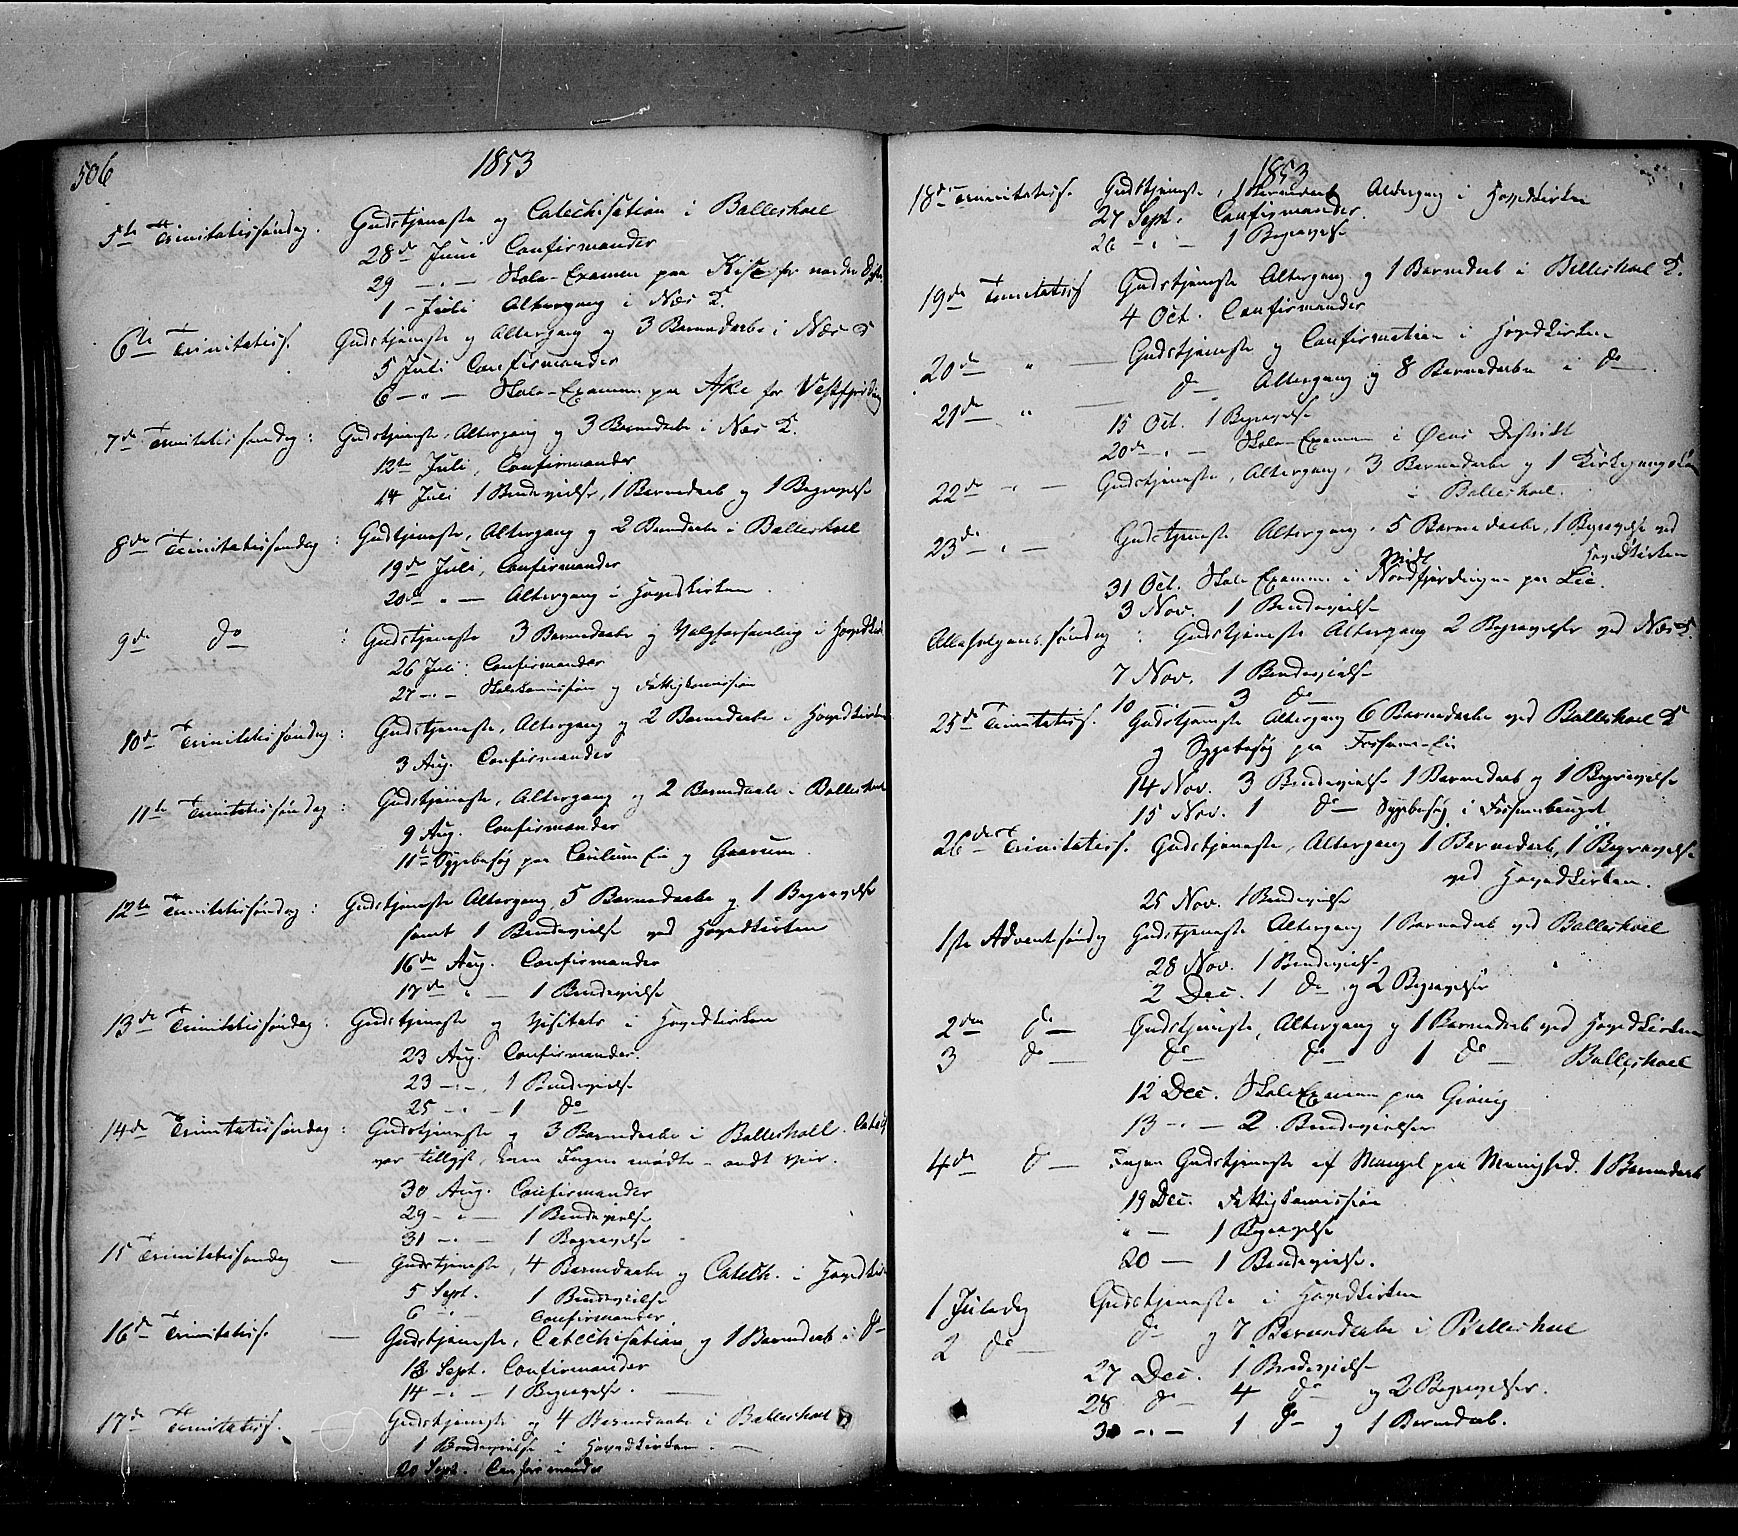 506
1853
5te Trinitatissøndag. Gudstjeneste og Catechisation i Balleshoel
28de Juni Confirmander
29 -"- Skole-Examen paa Kise for nordre
1 - Juli Altergang i Næs K.
6te Trinitatiss. Gudstjeneste og Altergang og 3 Barnedaabe i Næs K
5 Juli Confirmander
6 -"- Skole-Examen paa Ake for
7de Trinitatissøndag: Gudstjeneste, Altergang og 3 Barnedaabe i Næs K.
12te Juli, Confirmander
14 Juli 1 Brudevielse, 1 Barnedaab og 1 Begravelse
8de Trinitatissøndag: Gudstjeneste, Altergang og 2 Barnedaabe i Balleshoel
19de Juli, Confirmander
20de " - Altergang i Hovedkirken.
9de do : Gudstjeneste 3 Barnedaabe og Valgforsamling i
26 Juli: Confirmander
27 -"- Skolekommission og Fattigkommission
10de Trinitatissøndag: Gudstjeneste, Altergang og 2 Barnedaabe i Hovedkirken
3 Aug. Confirmander
11te Trinitatissøndag: Gudstjeneste, Altergang og 2 Barnedaabe i Balleshoel
9 Aug. Confirmander
11te Sygebesøg paa og
12te Trinitatissøndag: Gudstjeneste Altergang, 5 Barnedaabe og 1 Begravelse
samt 1 Brudevielse ved Hovedkirken
16de Aug. Confirmander
17de " - 1 Brudevielse
13de Trinitatissøndag: Gudstjeneste og Visitats i Hovedkirken
23 Aug. Confirmander.
23 -"- 1 Brudevielse
25 -"- 1 do
14de Trinitatissøndag: Gudstjeneste og 3 Barnedaabe i Balleshoel.
var tillyst, men Ingen mødte - ondt Veir.
30 Aug. Confirmander
29 -"- 1 Brudevielse
31 -"- 1 Begravelse
15 Trinitatissøndag - Gudstjeneste, 4 Barnedaabe og Catech. i
5 Sept. 1 Brudevielse
6 " Confirmander
16de Trinitatiss. - Gudstjeneste, Catechisation og 1 Barnedaab i do
13 Sept. Confirmander
14 -"- 1 Begravelse.
17de Trinitatiss. - Gudstjeneste og 4 Barnedaabe i Balleshoel
1 Brudevielse i Hovedkirken.
20 Sept. Confirmander
1853
18de Trinitatiss. Gudstjeneste, 1 Barnedaab Altergang i Hovedkirken
27 Sept. Confirmander.
26 -"- 1 Begravelse
19de Trinitatiss Gudstjeneste Altergang og 1 Barnedaab i Balleshoel K.
4 Oct. Confirmander
20de " - Gudstjeneste og Confirmation i Hovedkirken
21de " - do Altergang og 8 Barnedaabe i do
15 Oct. 1 Begravelse
20de " - Skole-Examen i Øens District
22de " - Gudstjeneste, Altergang, 3 Barnedaabe og 1
i Balleshoel.
23de " - Gudstjeneste Altergang, 5 Barnedaabe, 1 Begravelse ved
Hovedkirken
31 Oct. Skole Examen i Nordfjerdingen paa Lie.
3 Nov. 1 Brudevielse
Allehelgenssøndag: Gudstjeneste Altergang 2 Begravelser ved Næs K.
7 Nov. 1 Brudevielse
10 - 3 do
25de Trinitatiss. Gudstjeneste Altergang 6 Barnedaabe ved Balleshoel K
og Sygebesøg paa
14 Nov. 3 Brudevielse 1 Barnedaab og 1 Begravelse
15 Nov. 1 do Sygebesøg i
26de Trinitatiss. Gudstjeneste, Altergang 1 Barnedaab, 1 Begravelse
ved Hovedkirken.
25 Nov. 1 Brudevielse
1ste Adventsøndag Gudstjeneste Altergang 1 Barnedaab ved Balleshoel
28 Nov. 1 Brudevielse
2 Dec. 1 do og 2 Begravelse
2den do Gudstjeneste, Altergang og 1 Barnedaab ved Hovedkirken
3 do do do 1 do Balleshoel
12 Dec. Skole Examen paa
13 -"- 2 Brudevielser
4de do Ingen Gudstjeneste af Mangel paa Menighed. 1 Barnedaab
19 Dec. Fattigkomission
" - 1 Begravelse
20 - 1 Brudevielse.
1 Juledag Gudstjeneste i Hovedkirken
2 do do og 7 Barnedaabe i Balleshoel
27 Dec. 1 Brudevielse
28 do 4 do og 2 Begravelser.
30 -"- 1 do og 1 Barnedaab.